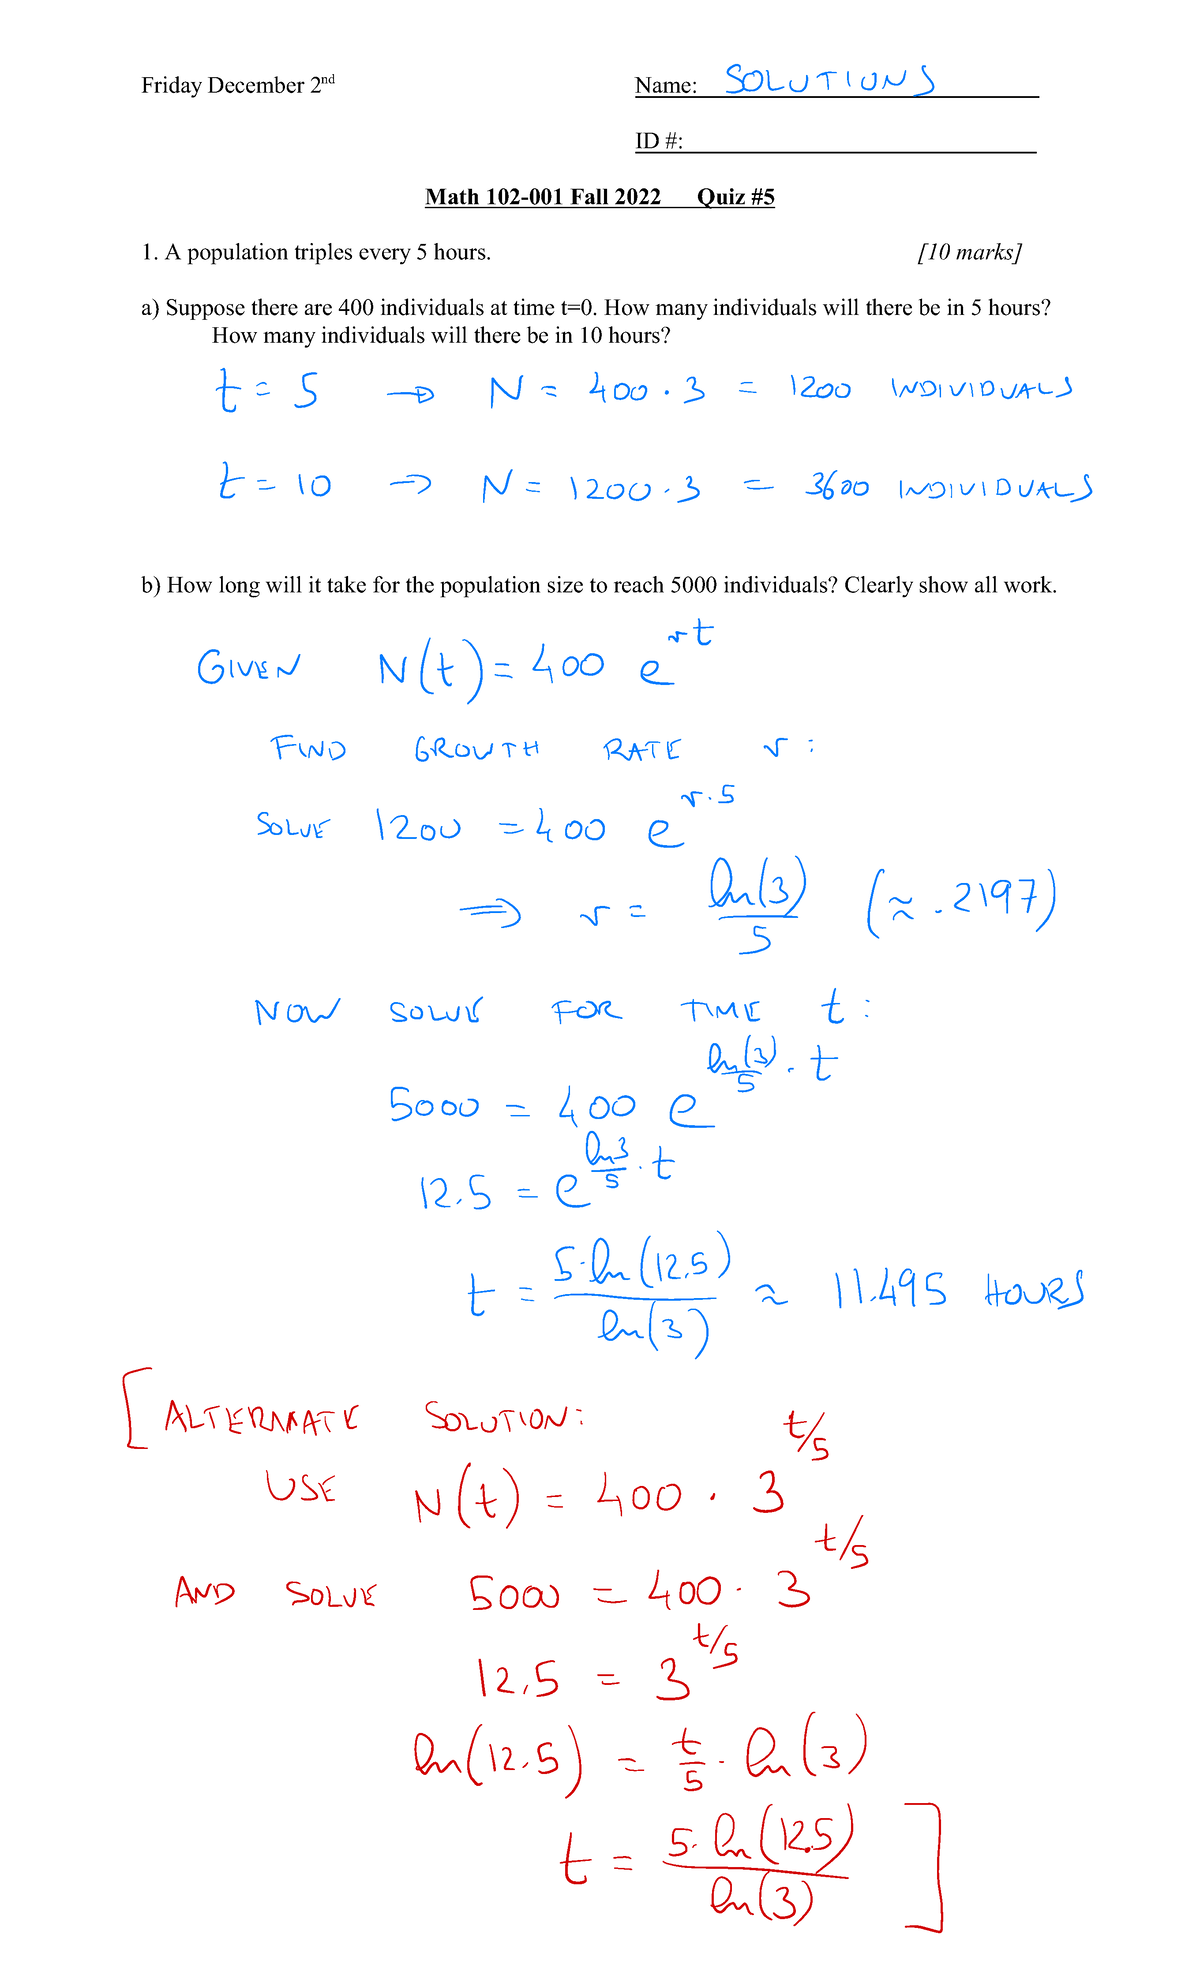 Friday December 2nd
Name: SOLUTIONS
ID #:
Math 102-001 Fall 2022 Quiz #5
1. A population triples every 5 hours. [10 marks]
a) Suppose there are 400 individuals at time t=0. How many individuals will there be in 5 hours?
How many individuals will there be in 10 hours?
t = 5 → N = 400 · 3 = 1200 INDIVIDUALS
t = 10 → N = 1200 · 3 = 3600 INDIVIDUALS
b) How long will it take for the population size to reach 5000 individuals? Clearly show all work.
GIVEN N(t) = 400 e^rt
FIND GROWTH RATE r :
SOLVE 1200 = 400 e^r·5
⇒ r = ln(3)/5 (≈ .2197)
NOW SOLVE FOR TIME t :
5000 = 400 e^ln(3)/5 · t
12.5 = e^ln3/5 · t
t = 5·ln(12.5)/ln(3) ≈ 11.495 HOURS
[ALTERNATE SOLUTION:
USE N(t) = 400 · 3^t/5
AND SOLVE 5000 = 400 · 3^t/5
12.5 = 3^t/5
ln(12.5) = t/5 · ln(3)
t = 5·ln(12.5)/ln(3) ]